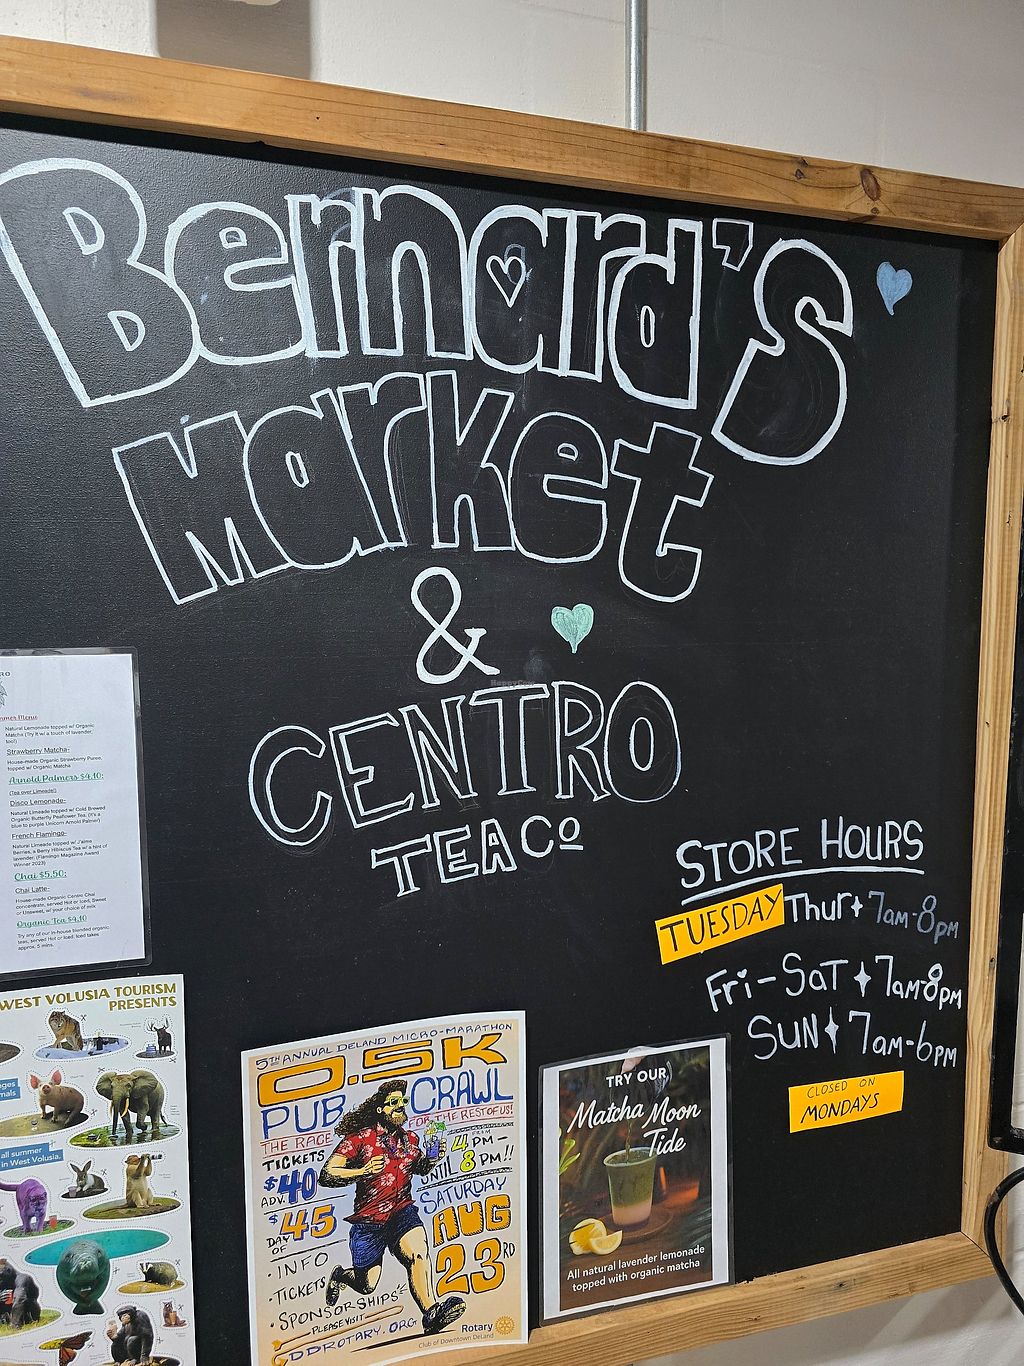 Bernard's
Market
&
CENTRO
TEA Co
STORE HOURS
TUESDAY Thur 7am-8pm
Fri-SAT 7am-8pm
SUN 7am-6pm
CLOSED ON
MONDAYS
Menu
Natural Lemonade topped w/ Organic
Matcha (Try it w/ a touch of lavender,
too!)
Strawberry Matcha-
House-made Organic Strawberry Puree,
topped w/ Organic Matcha
Arnold Palmers $4.10:
(Tea over Limeade!)
Disco Lemonade-
Natural Limeade topped w/ Cold Brewed
Organic Butterfly Peaflower Tea. (It's a
blue to purple Unicorn Arnold Palmer)
French Flamingo-
Natural Limeade topped w/ J'aime
Berries, a Berry Hibiscus Tea w/ a hint of
lavender. (Flamingo Magazine Award
Winner 2023)
Chai $5.50:
Chai Latte-
House-made Organic Centro Chai
concentrate, served Hot or Iced, Sweet
or Unsweet, w/ your choice of milk
Organic Tea $4.10
Try any of our in-house blended organic
teas, served Hot or Iced. Iced takes
approx. 5 mins.
WEST VOLUSIA TOURISM
PRESENTS
all summer
in West Volusia.
5TH ANNUAL DELAND MICRO-MARATHON
0.5K
PUB CRAWL
THE RACE FOR THE REST OF US!
TICKETS
ADV. $40
$45
DAY OF
FROM
4 PM-
UNTIL 8 PM!!
SATURDAY
AUG
23RD
• INFO
• TICKETS
• SPONSORSHIPS
PLEASE VISIT
DDROTARY.ORG
Rotary
Club of Downtown DeLand
TRY OUR
Matcha Moon
Tide
All natural lavender lemonade
topped with organic matcha
HappyCow